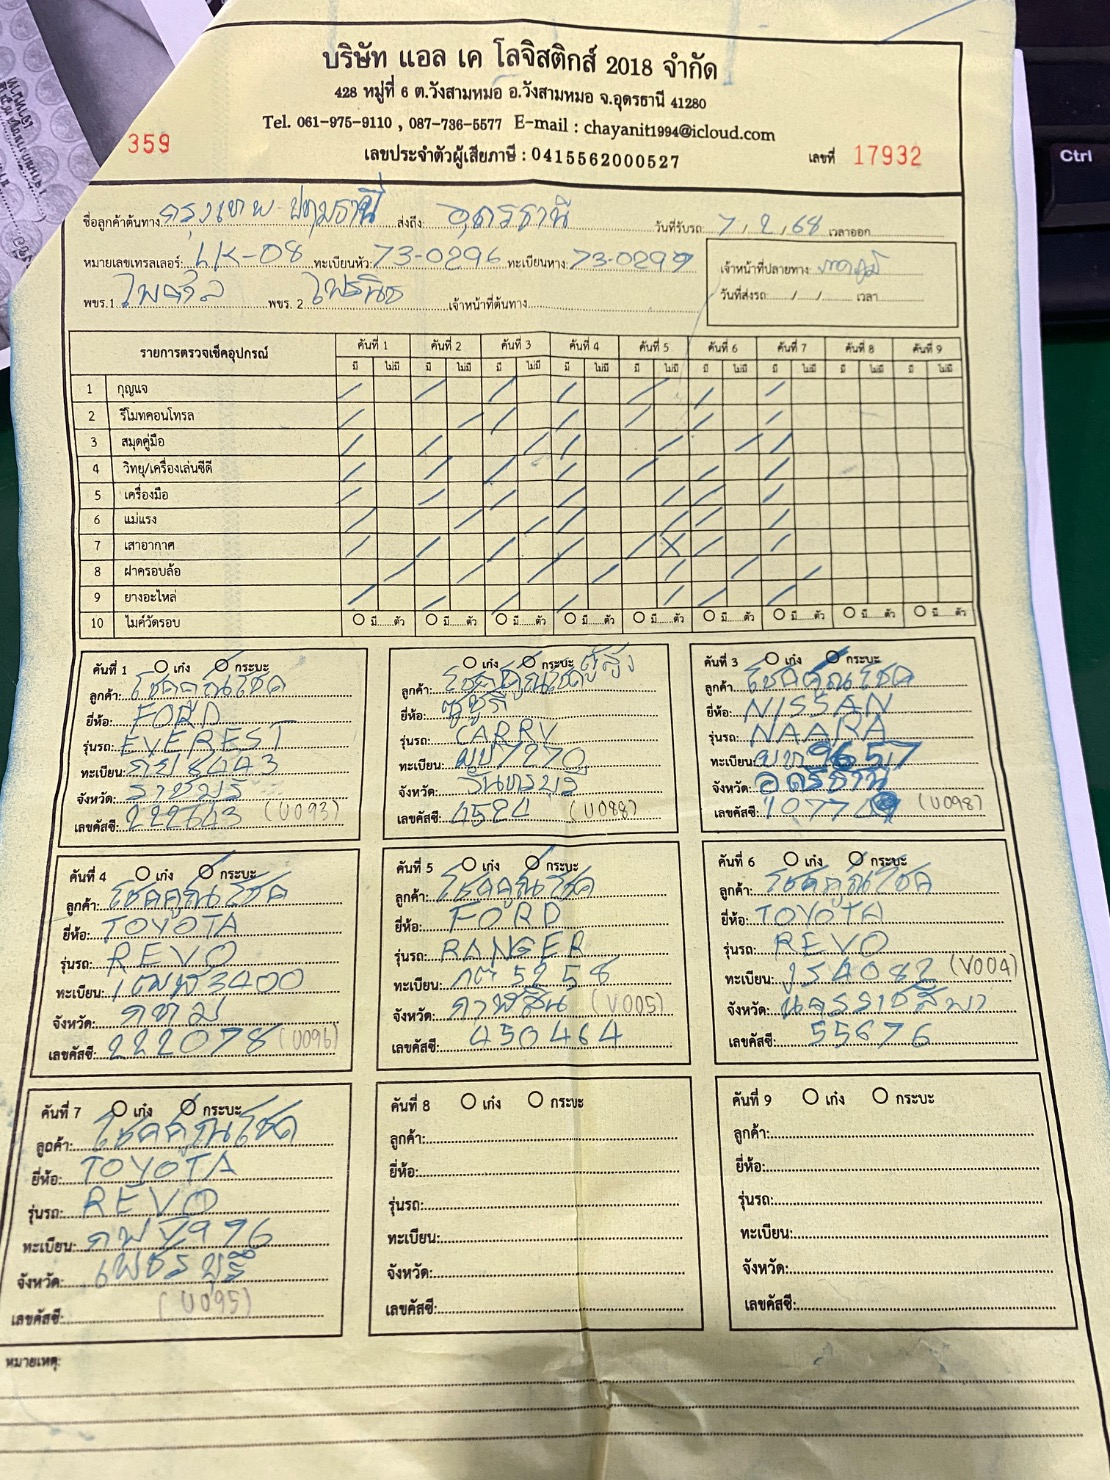 บริษัท แอล เค โลจิสติกส์ 2018 จำกัด
428 หมู่ที่ 6 ต.วังสามหมอ อ.วังสามหมอ จ.อุดรธานี 41280
Tel. 061-975-9110 , 087-736-5577 E-mail : chayanit1994@icloud.com
359 เลขประจำตัวผู้เสียภาษี : 0415562000527 เลขที่ 17932
ชื่อลูกค้าต้นทาง กรุงเทพ-ปทุมธานี ส่งถึง อุดรธานี วันที่รับรถ 7, 2, 68 เวลาออก
หมายเลขเทรลเลอร์: LK-08 ทะเบียนหัว: 73-0296 ทะเบียนหาง: 73-0297
เจ้าหน้าที่ปลายทาง
พขร.1 ไพศาล พขร. 2 เจ้าหน้าที่ต้นทาง
วันที่ส่งรถ / / เวลา
รายการตรวจเช็คอุปกรณ์ คันที่ 1 คันที่ 2 คันที่ 3 คันที่ 4 คันที่ 5 คันที่ 6 คันที่ 7 คันที่ 8 คันที่ 9
มี ไม่มี มี ไม่มี มี ไม่มี มี ไม่มี มี ไม่มี มี ไม่มี มี ไม่มี มี ไม่มี มี ไม่มี
1 กุญแจ
2 รีโมทคอนโทรล
3 สมุดคู่มือ
4 วิทยุ/เครื่องเล่นซีดี
5 เครื่องมือ
6 แม่แรง
7 เสาอากาศ
8 ฝาครอบล้อ
9 ยางอะไหล่
10 ไมค์วัดรอบ มี ตัว มี ตัว มี ตัว มี ตัว มี ตัว มี ตัว มี ตัว มี ตัว มี ตัว
คันที่ 1 เก๋ง กระบะ
ลูกค้า: โชคคูณโชค
ยี่ห้อ: FORD
รุ่นรถ: EVEREST
ทะเบียน: 8443
จังหวัด: ราชบุรี
เลขคัสซี: 222643 (U093)
เก๋ง กระบะ ตู้สูง
ลูกค้า: โชคคูณโชค
ยี่ห้อ: ซูซูกิ
รุ่นรถ: CARRY
ทะเบียน: 7270
จังหวัด: จันทรบุรี
เลขคัสซี: 4524 (U088)
คันที่ 3 เก๋ง กระบะ
ลูกค้า: โชคคูณโชค
ยี่ห้อ: NISSAN
รุ่นรถ: NAARA
ทะเบียน: 9657
จังหวัด: อุดรธานี
เลขคัสซี: (U098)
คันที่ 4 เก๋ง กระบะ
ลูกค้า: โชคคูณโชค
ยี่ห้อ: TOYOTA
รุ่นรถ: REVO
ทะเบียน: 3400
จังหวัด: กทม
เลขคัสซี: 222078 (U096)
คันที่ 5 เก๋ง กระบะ
ลูกค้า: โชคคูณโชค
ยี่ห้อ: FORD
รุ่นรถ: RANGER
ทะเบียน: กต 5258
จังหวัด: กาฬสิน (V005)
เลขคัสซี: 450464
คันที่ 6 เก๋ง กระบะ
ลูกค้า: โชคคูณโชค
ยี่ห้อ: TOYOTA
รุ่นรถ: REVO
ทะเบียน: 4082 (V004)
จังหวัด: นครราชสีมา
เลขคัสซี: 55676
คันที่ 7 เก๋ง กระบะ
ลูกค้า: โชคคูณโชค
ยี่ห้อ: TOYOTA
รุ่นรถ: REVO
ทะเบียน: 7996
จังหวัด: เพชรบุรี
เลขคัสซี: (U095)
คันที่ 8 เก๋ง กระบะ
ลูกค้า:
ยี่ห้อ:
รุ่นรถ:
ทะเบียน:
จังหวัด:
เลขคัสซี:
คันที่ 9 เก๋ง กระบะ
ลูกค้า:
ยี่ห้อ:
รุ่นรถ:
ทะเบียน:
จังหวัด:
เลขคัสซี:
หมายเหตุ:
Ctrl